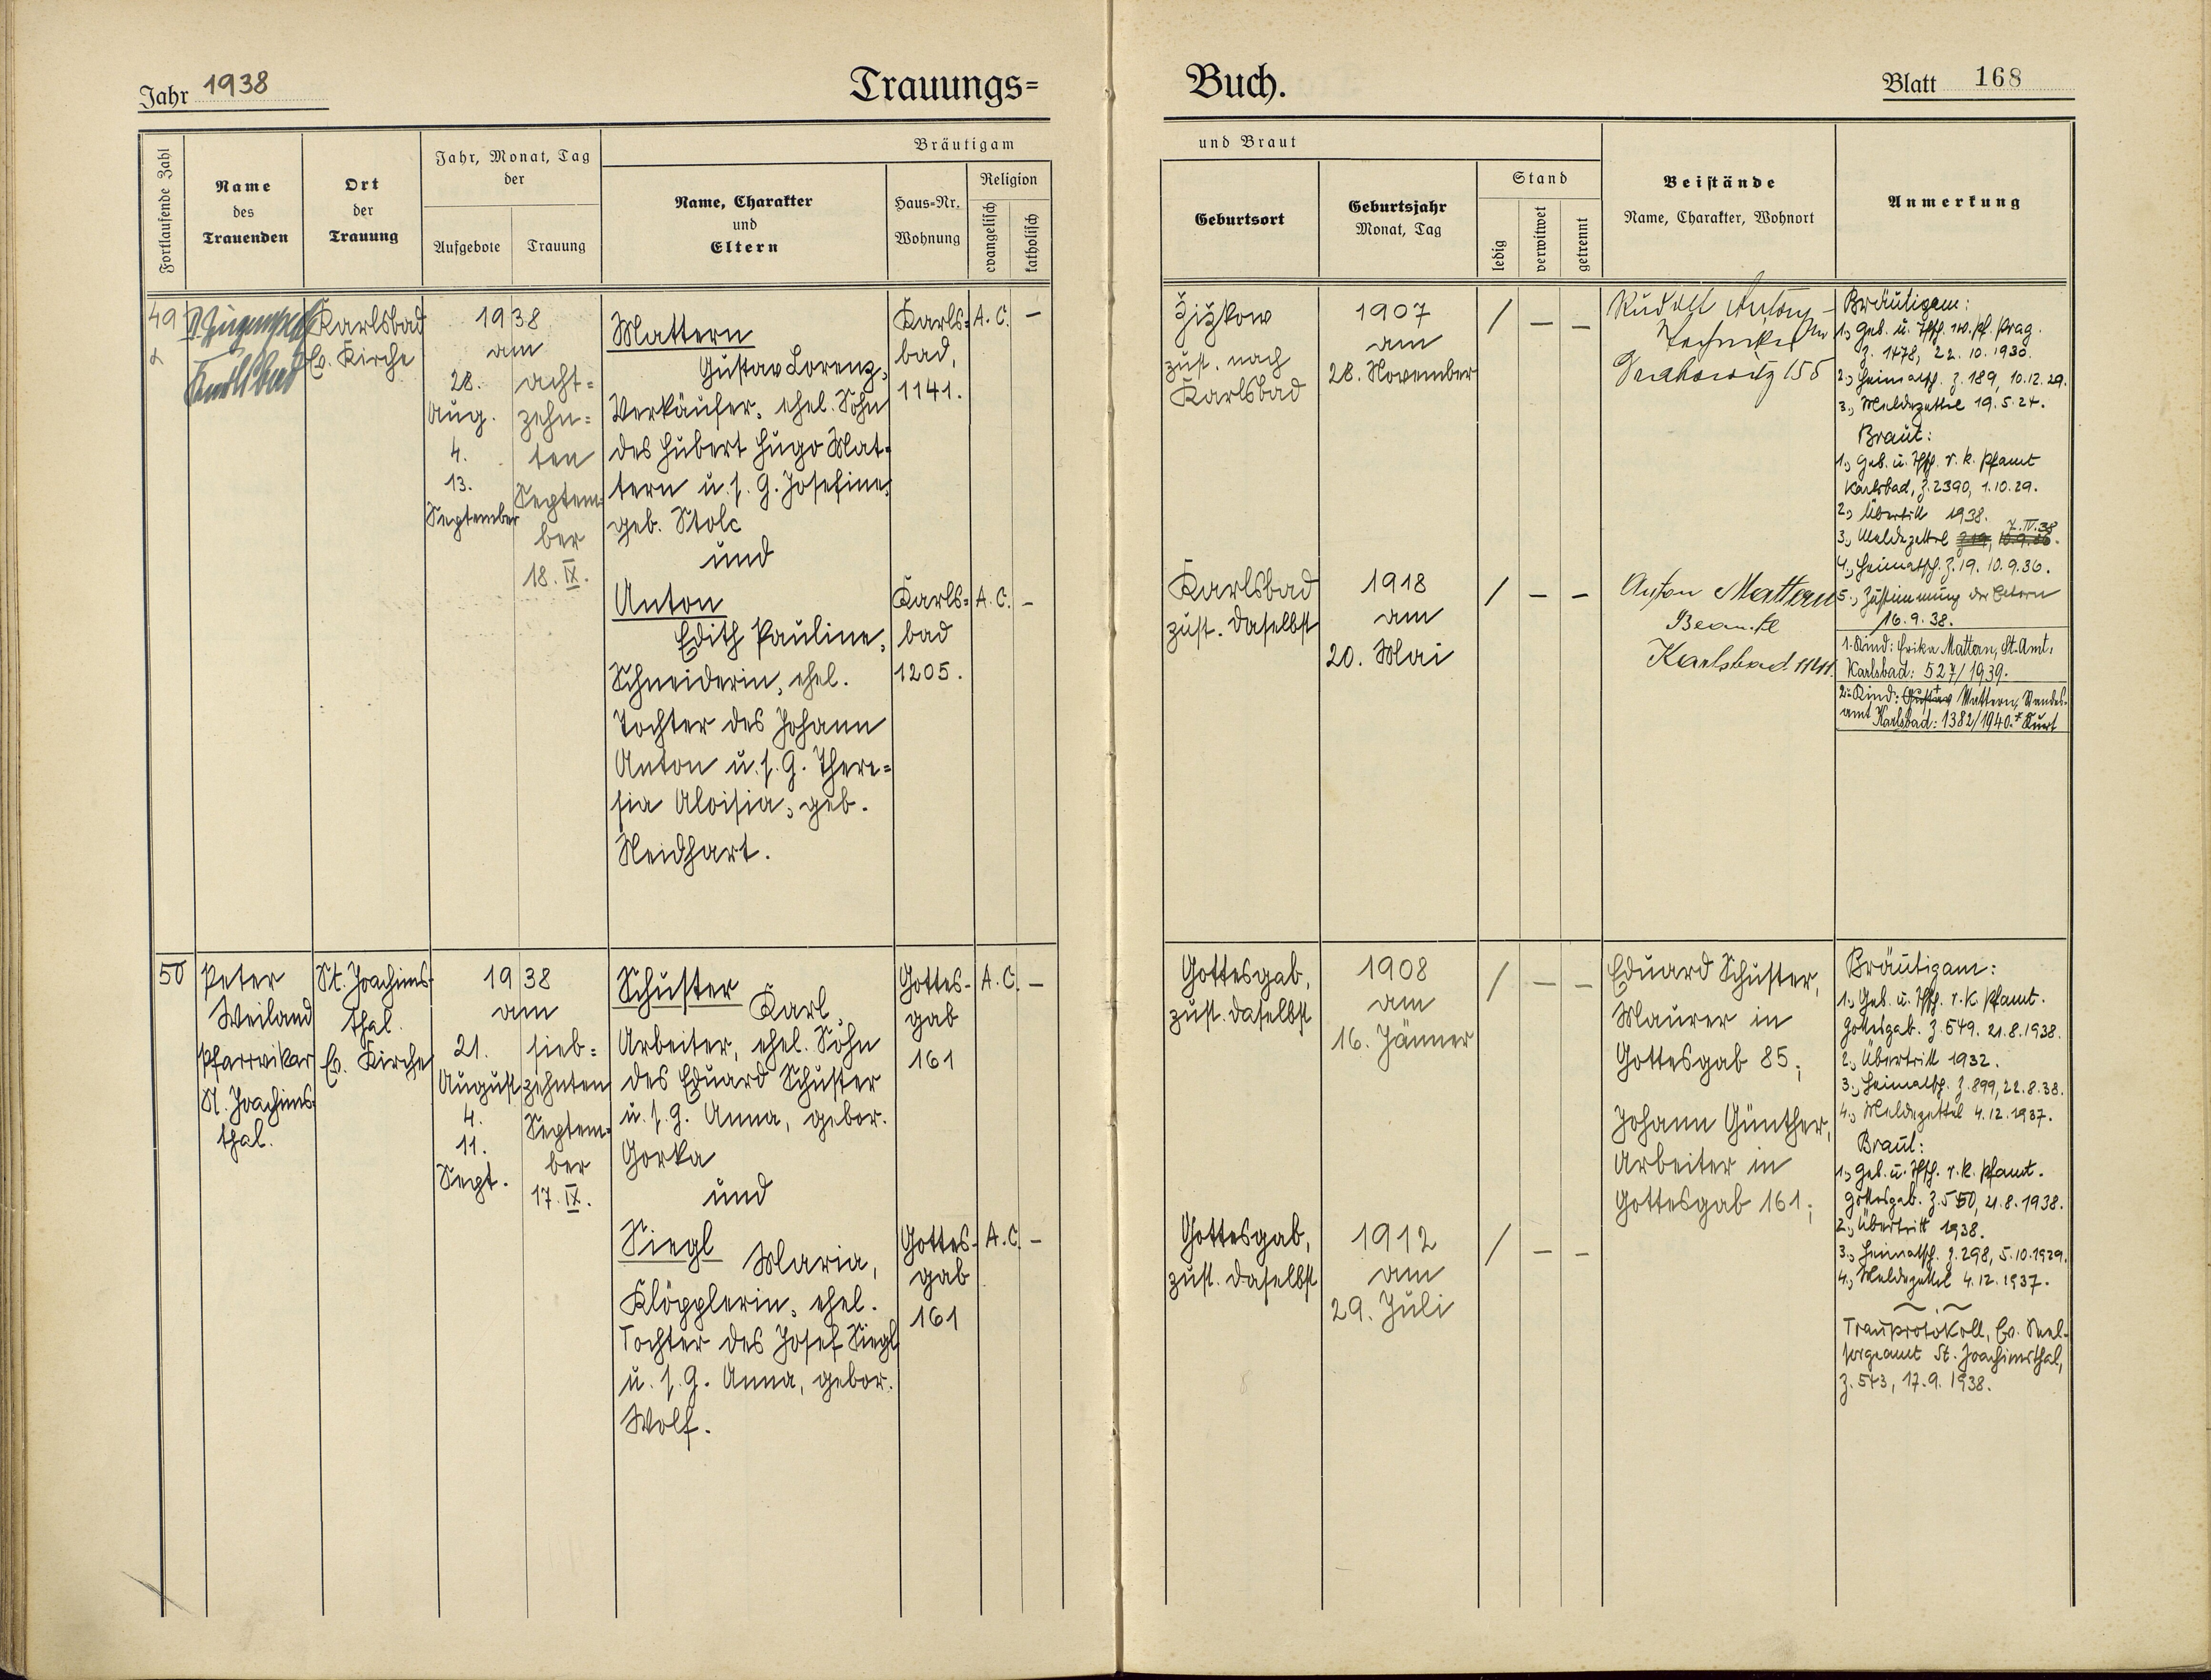 Jahr 1938
Trauungs=
Buch.
Blatt 168
Fortlaufende Zahl
Name
des
Trauenden
Ort
der
Trauung
Jahr, Monat, Tag
der
Aufgebote
Trauung
Bräutigam
Name, Charakter
und
Eltern
Haus=Nr.
Wohnung
Religion
evangelisch
katholisch
und Braut
Geburtsort
Geburtsjahr
Monat, Tag
Stand
ledig
verwitwet
getrennt
Beistände
Name, Charakter, Wohnort
Anmerkung
49
Karlsbad
Karlsbad
Ev. Kirche
1938
am
28.
Aug.
4.
13.
September
acht=
zehn=
ten
Septem=
ber
18. IX.
Mattern
Gustav Lorenz,
Verkäufer, ehel. Sohn
des Hubert Hugo Mat=
tern u. s. G. Josefine,
geb. Stolc
und
Anton
Edith Pauline,
Schneiderin, ehel.
Tochter des Johann
Anton u. s. G. There=
sia Aloisia, geb.
Neidhart.
Karls=
bad,
1141.
A. C.
–
Karls=
bad
1205.
A. C.
–
Žižkow
zust. nach
Karlsbad
1907
am
28. November
/ – –
Karlsbad
zust. daselbst
1918
am
20. Mai
/ – –
Rudolf Anton
155
Anton Mattern
Beamte
Karlsbad 1141.
Bräutigam:
1., Geb. u. Tfsch. Prag.
Z. 1478, 22. 10. 1930.
2., Heimatsch. Z. 189, 10.12.29.
3., Meldezettel 19. 5. 24.
Braut:
1., Geb. u. Tfsch. r. k. Pfamt
Karlsbad, Z. 2390, 1.10.29.
2., Übertritt 1938.
3., Meldezettel 7. IV. 38.
4., Heimatsch. Z. 19. 10. 9. 36.
5., Zustimmung der Eltern
16. 9. 38.
1. Kind: Erika Mattern, St.Amt,
Karlsbad: 527/1939.
2. Kind: Gustav Mattern, Standes-
amt Karlsbad: 1382/1940. + Kurt
50
Peter
Weiland
Pfarrvikar
St. Joachims-
thal.
St. Joachims-
thal.
Ev. Kirche
1938
am
21.
August
4.
11.
Sept.
sieb=
zehnten
Septem=
ber
17. IX.
Schuster
Karl,
Arbeiter, ehel. Sohn
des Eduard Schuster
u. s. G. Anna, gebor.
Gorka
und
Siegl
Maria,
Klöpplerin, ehel.
Tochter des Josef Siegl
u. s. G. Anna, gebor.
Wolf.
Gottes-
gab
161
A. C.
–
Gottes-
gab
161
A. C.
–
Gottesgab,
zust. daselbst
1908
am
16. Jänner
/ – –
Gottesgab,
zust. daselbst
1912
am
29. Juli
/ – –
Eduard Schuster,
Maurer in
Gottesgab 85;
Johann Günther,
Arbeiter in
Gottesgab 161;
Bräutigam:
1., Geb. u. Tfsch. r. k. Pfamt.
Gottesgab. Z. 549. 21.8.1938.
2., Übertritt 1932.
3., Heimatsch. Z. 899, 22.8.38.
4., Meldezettel 4.12.1937.
Braut:
1., Geb. u. Tfsch. r. k. Pfamt.
Gottesgab. Z. 550, 21.8.1938.
2., Übertritt 1938.
3., Heimatsch. Z. 298, 5.10.1929.
4., Meldezettel 4.12.1937.
Trauprotokoll, Ev. Seel-
sorgeamt St. Joachimsthal,
Z. 543, 17. 9. 1938.